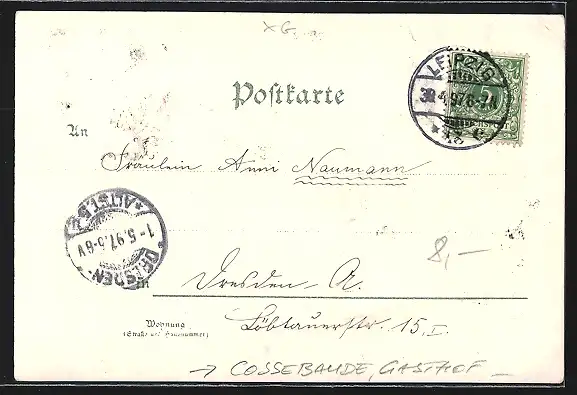 XG
LEIPZIG
30.4.97.6-7N.
5
Postkarte
An
Fräulein Anni Naumann
ALTST.
1-5.97.5-6V
DRESDEN-
8,—
in
Dresden-A.
Wohnung
(Straße und Hausnummer)
Löbtauerstr. 15, I.
→ COSSEBAUDE, GASTHOF —